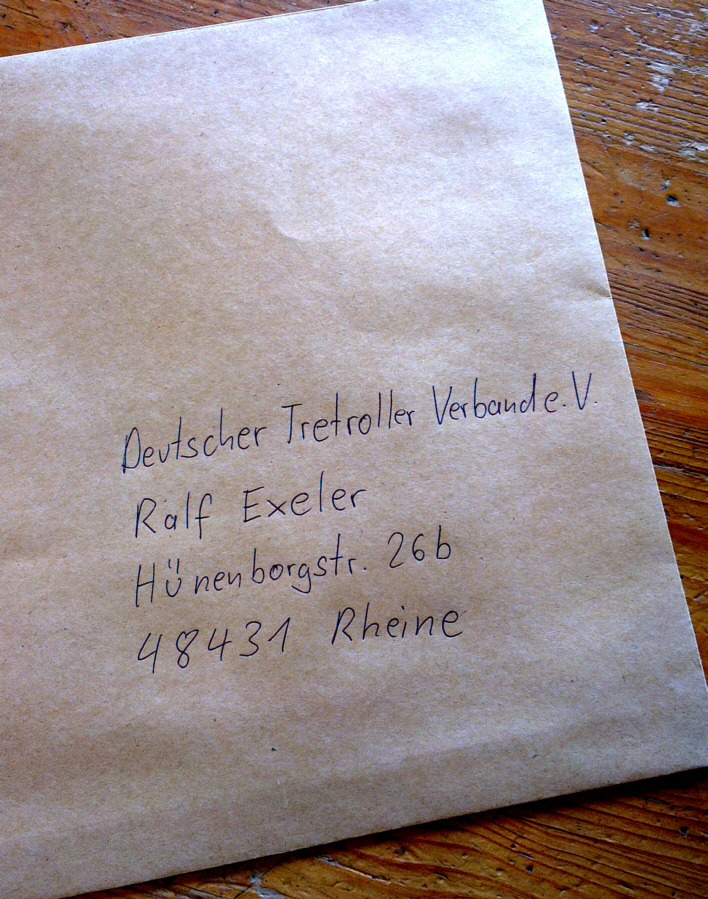 Deutscher Tretroller Verband e.V.
Ralf Exeler
Hünenborgstr. 26b
48431 Rheine